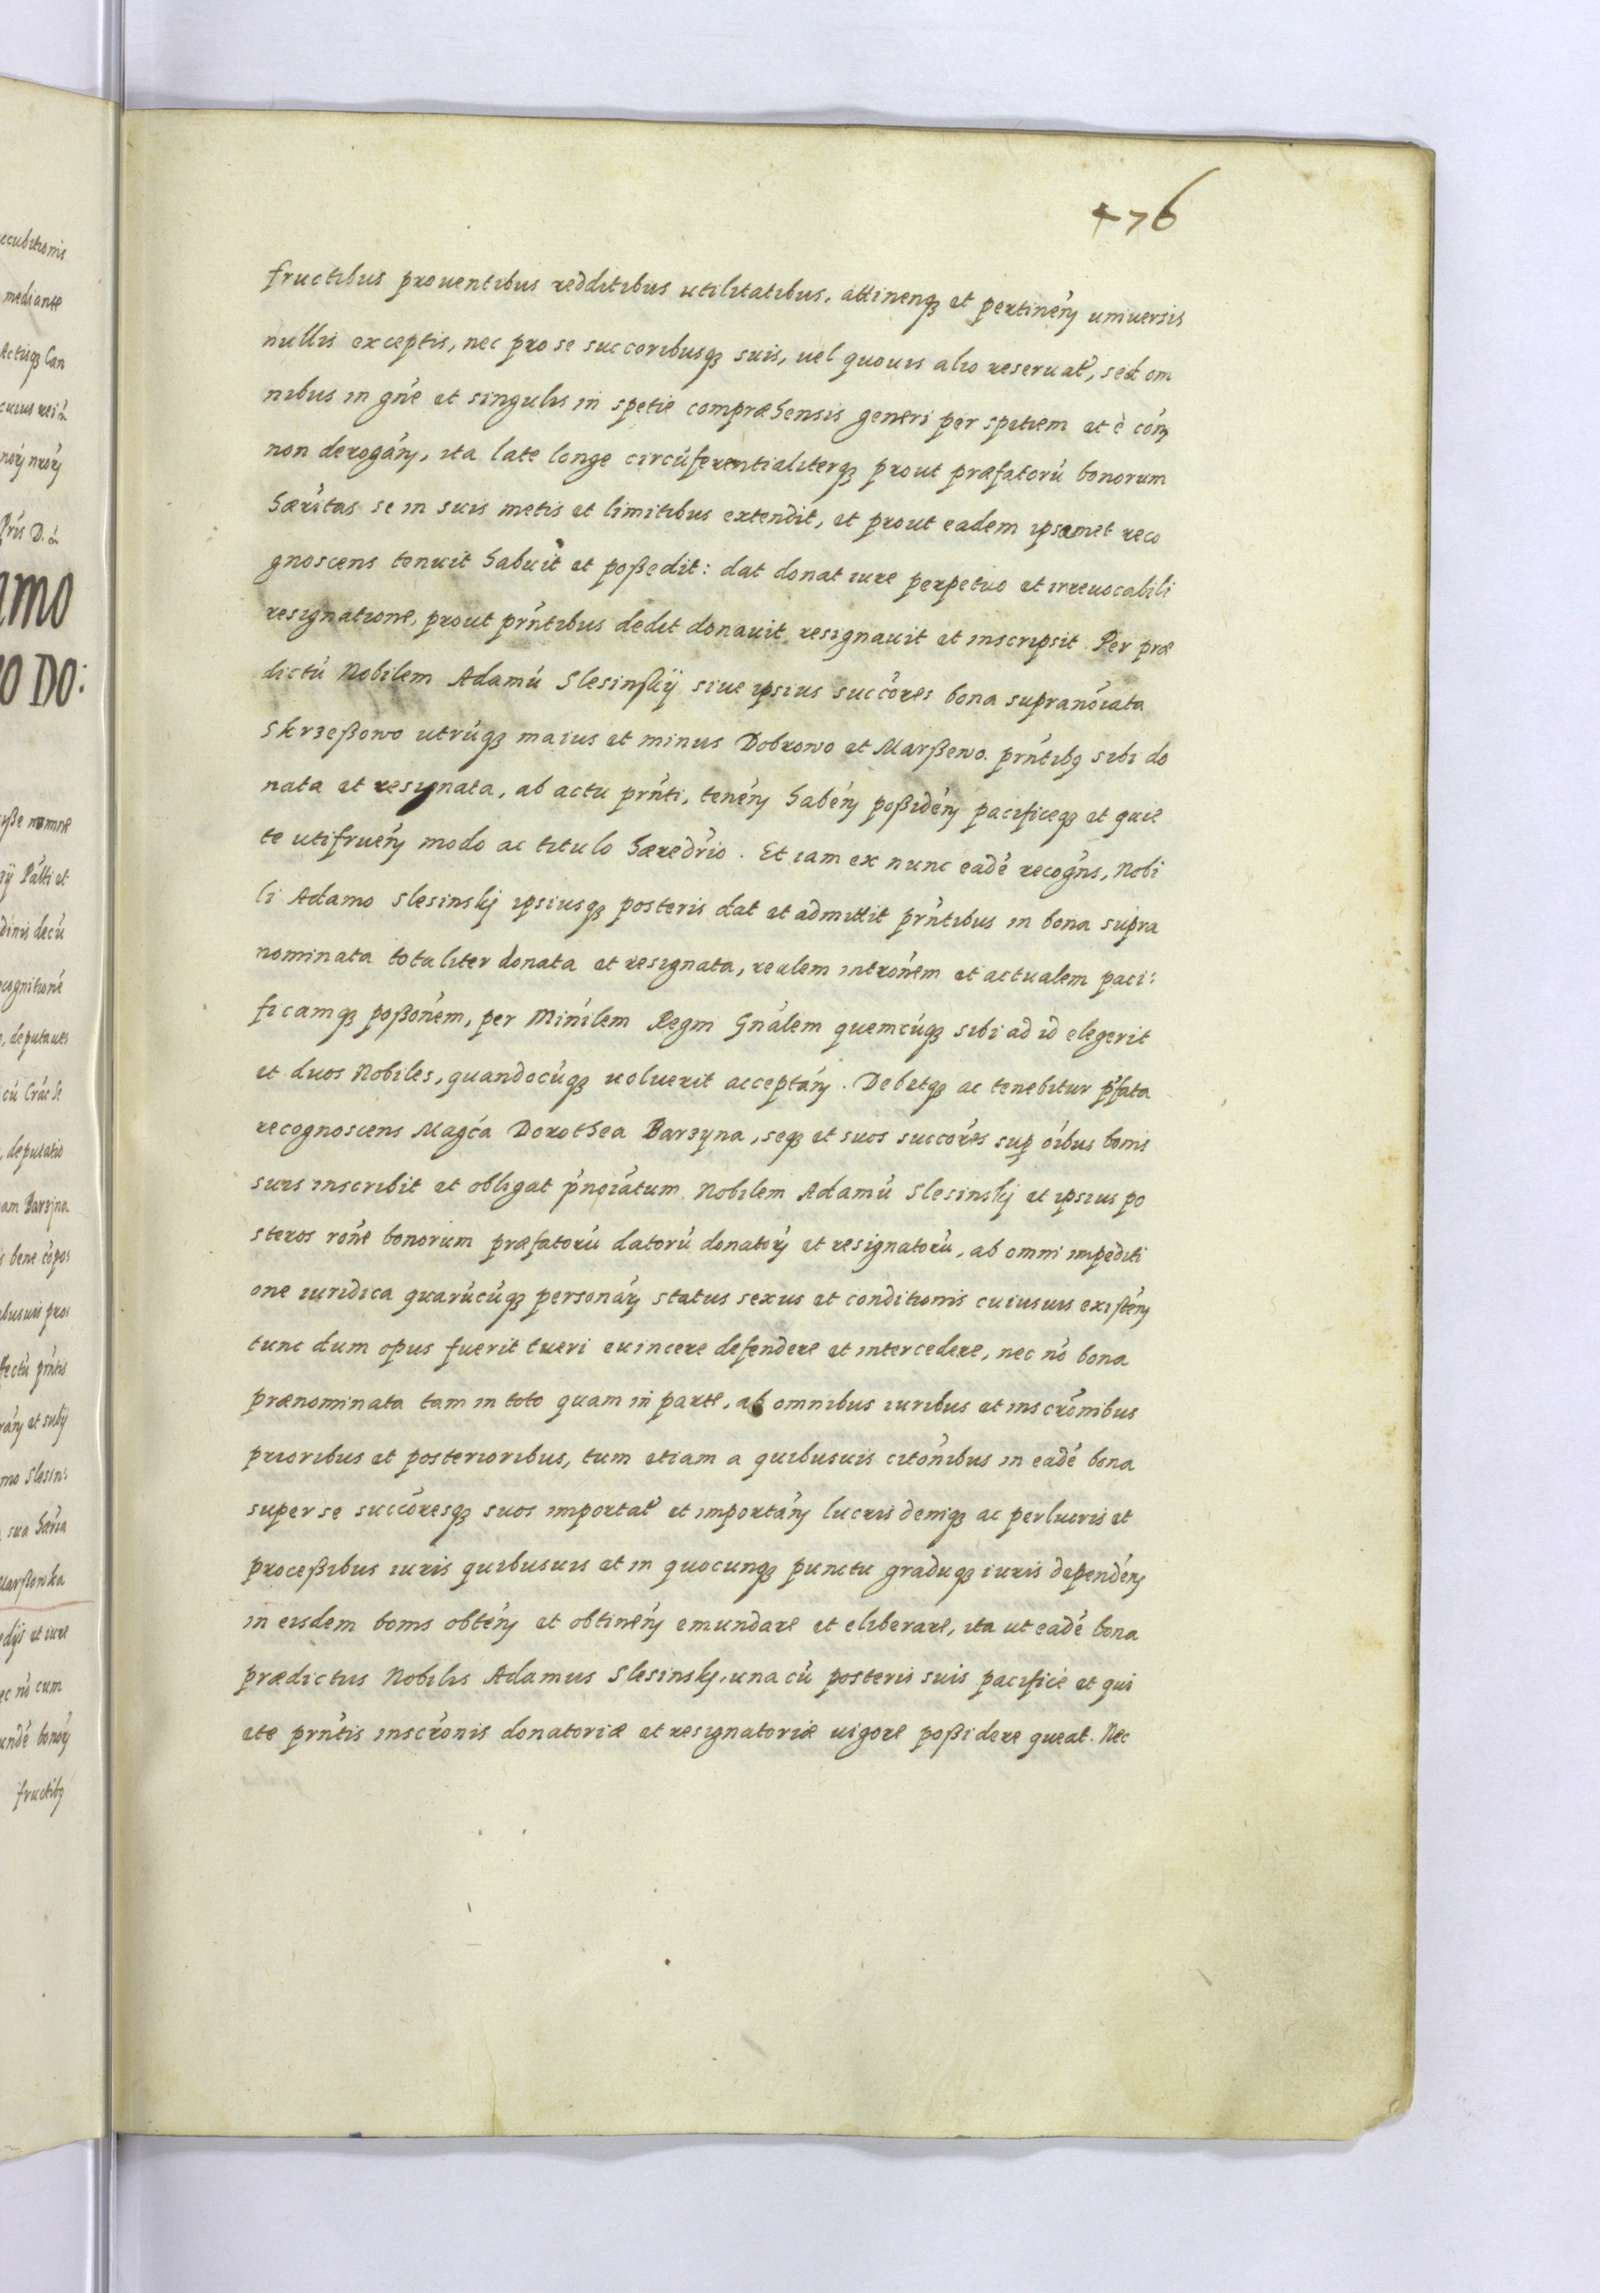 476
fructibus prouentibus redditibus utilitatibus, attinenq₃ et pertineń uniuersis
nullis exceptis, nec pro se succoribusq₃ suis, uel quouis alio reseruat̃, sed om
nibus in gñe et singulis in spetie compræhensis generi per spetiem et è cón
non derogań, ita late longe circũferentialiterq₃ prout præfatorũ bonorum
hærĩtas se in suis metis et limitibus extendit, et prout eadem ipsamet reco
gnoscens tenuit habuit et poßedit: dat donat iure perpetuo et irreuocabili
resignatione, prout prñtibus dedit donauit resignauit et inscripsit. Per præ
dictũ Nobilem Adamũ Slesinskij siue ipsius succõres bona supranõiata
Skrzeßowo utrũq₃ maius et minus Dobrowo et Marßewo. prñtibq sibi do
nata et resignata, ab actu prñti, teneń habeń poßideń pacificeq₃ et quie
te utifrueń modo ac titulo hæredrĩo. Et iam ex nunc eadẽ recogñs, Nobi
li Adamo Slesinskj ipsiusq₃ posteris dat et admittit prñtibus in bona supra
nominata totaliter donata et resignata, realem intrõnem et actualem paci:
ficamq₃ poßõnem, per Minĩlem Regni Gñalem quemcũq₃ sibi ad id elegerit
et duos Nobiles, quandocũq₃ uoluerit acceptań. Debetq₃ ac tenebitur p̃fata
recognoscens Magc̃a Dorothea Barzyna, seq₃ et suos succõres sup oĩbus bonis
suis inscribit et obligat p̃noĩatum Nobilem Adamũ Slesinskj et ipsius po
steros rõne bonorum præfatorũ datorũ donatorý et resignatorũ, ab omni impediti
one iuridica quarũcũq₃ personarý status sexus et conditionis cuiusuis existeń
tunc dum opus fuerit tueri euincere defendere et intercedere, nec nõ bona
prænominata tam in toto quam in parte, ab omnibus iuribus et inscrõnibus
prioribus et posterioribus, tum etiam a quibusuis citõnibus in eadẽ bona
super se succõresq₃ suos importat̃ et importań lucris deniq₃ ac perlucris et
proceßibus iuris quibusuis et in quocunq₃ punctu graduq₃ iuris dependeń
in eisdem bonis obteń et obtineń emundare et eliberare, ita ut eadẽ bona
prædictus Nobilis Adamus Slesinskj, una cũ posteris suis pacificè et qui
ete prñtis inscrõnis donatoriæ et resignatoriæ uigore poßidere queat. Nec